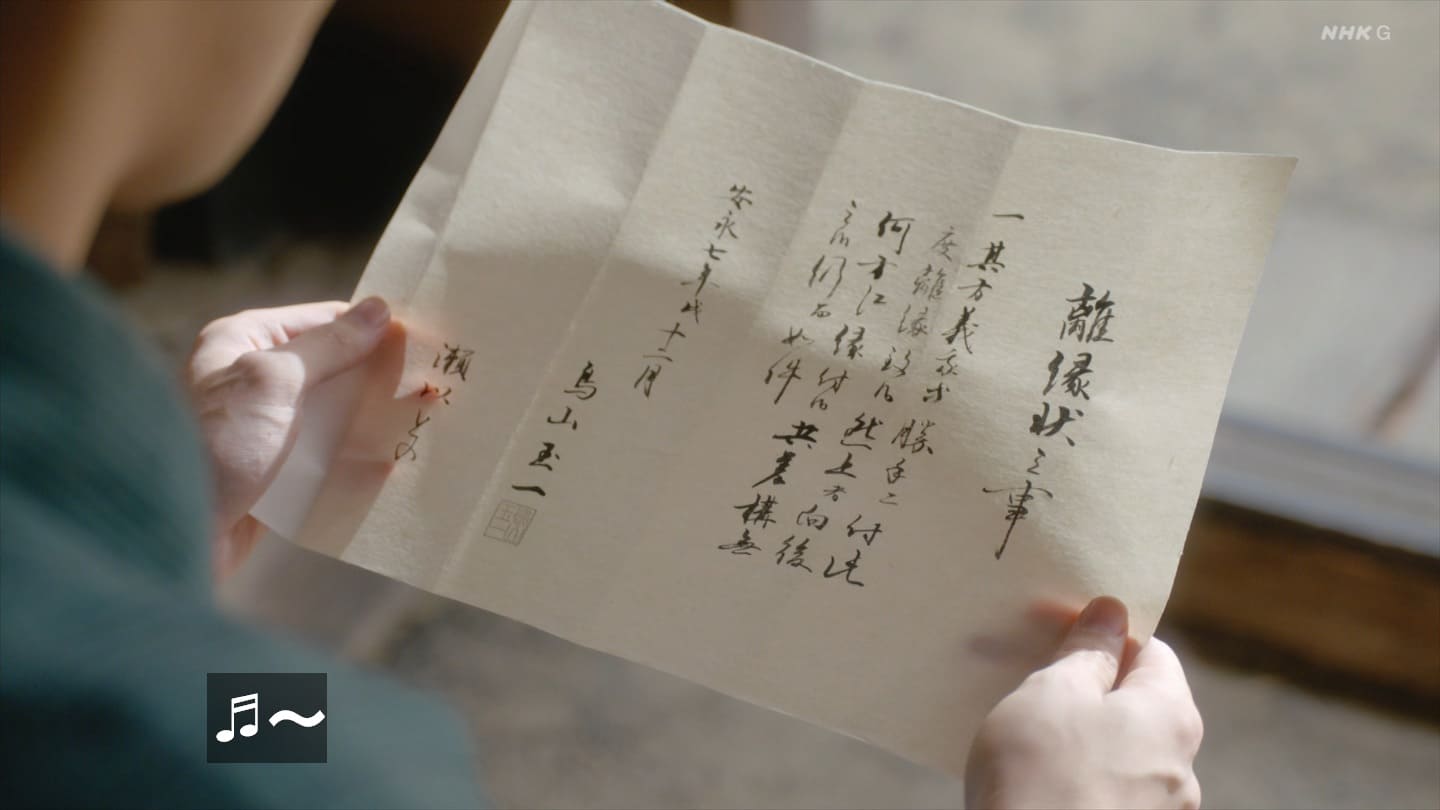 離縁状之事
一其方義我等
度離縁致候
勝手ニ付此
何方江縁付候
然上者向後
之候仍而如件
共差構無
安永七年戌十二月
鳥山玉一
瀬以
NHK G
♬〜